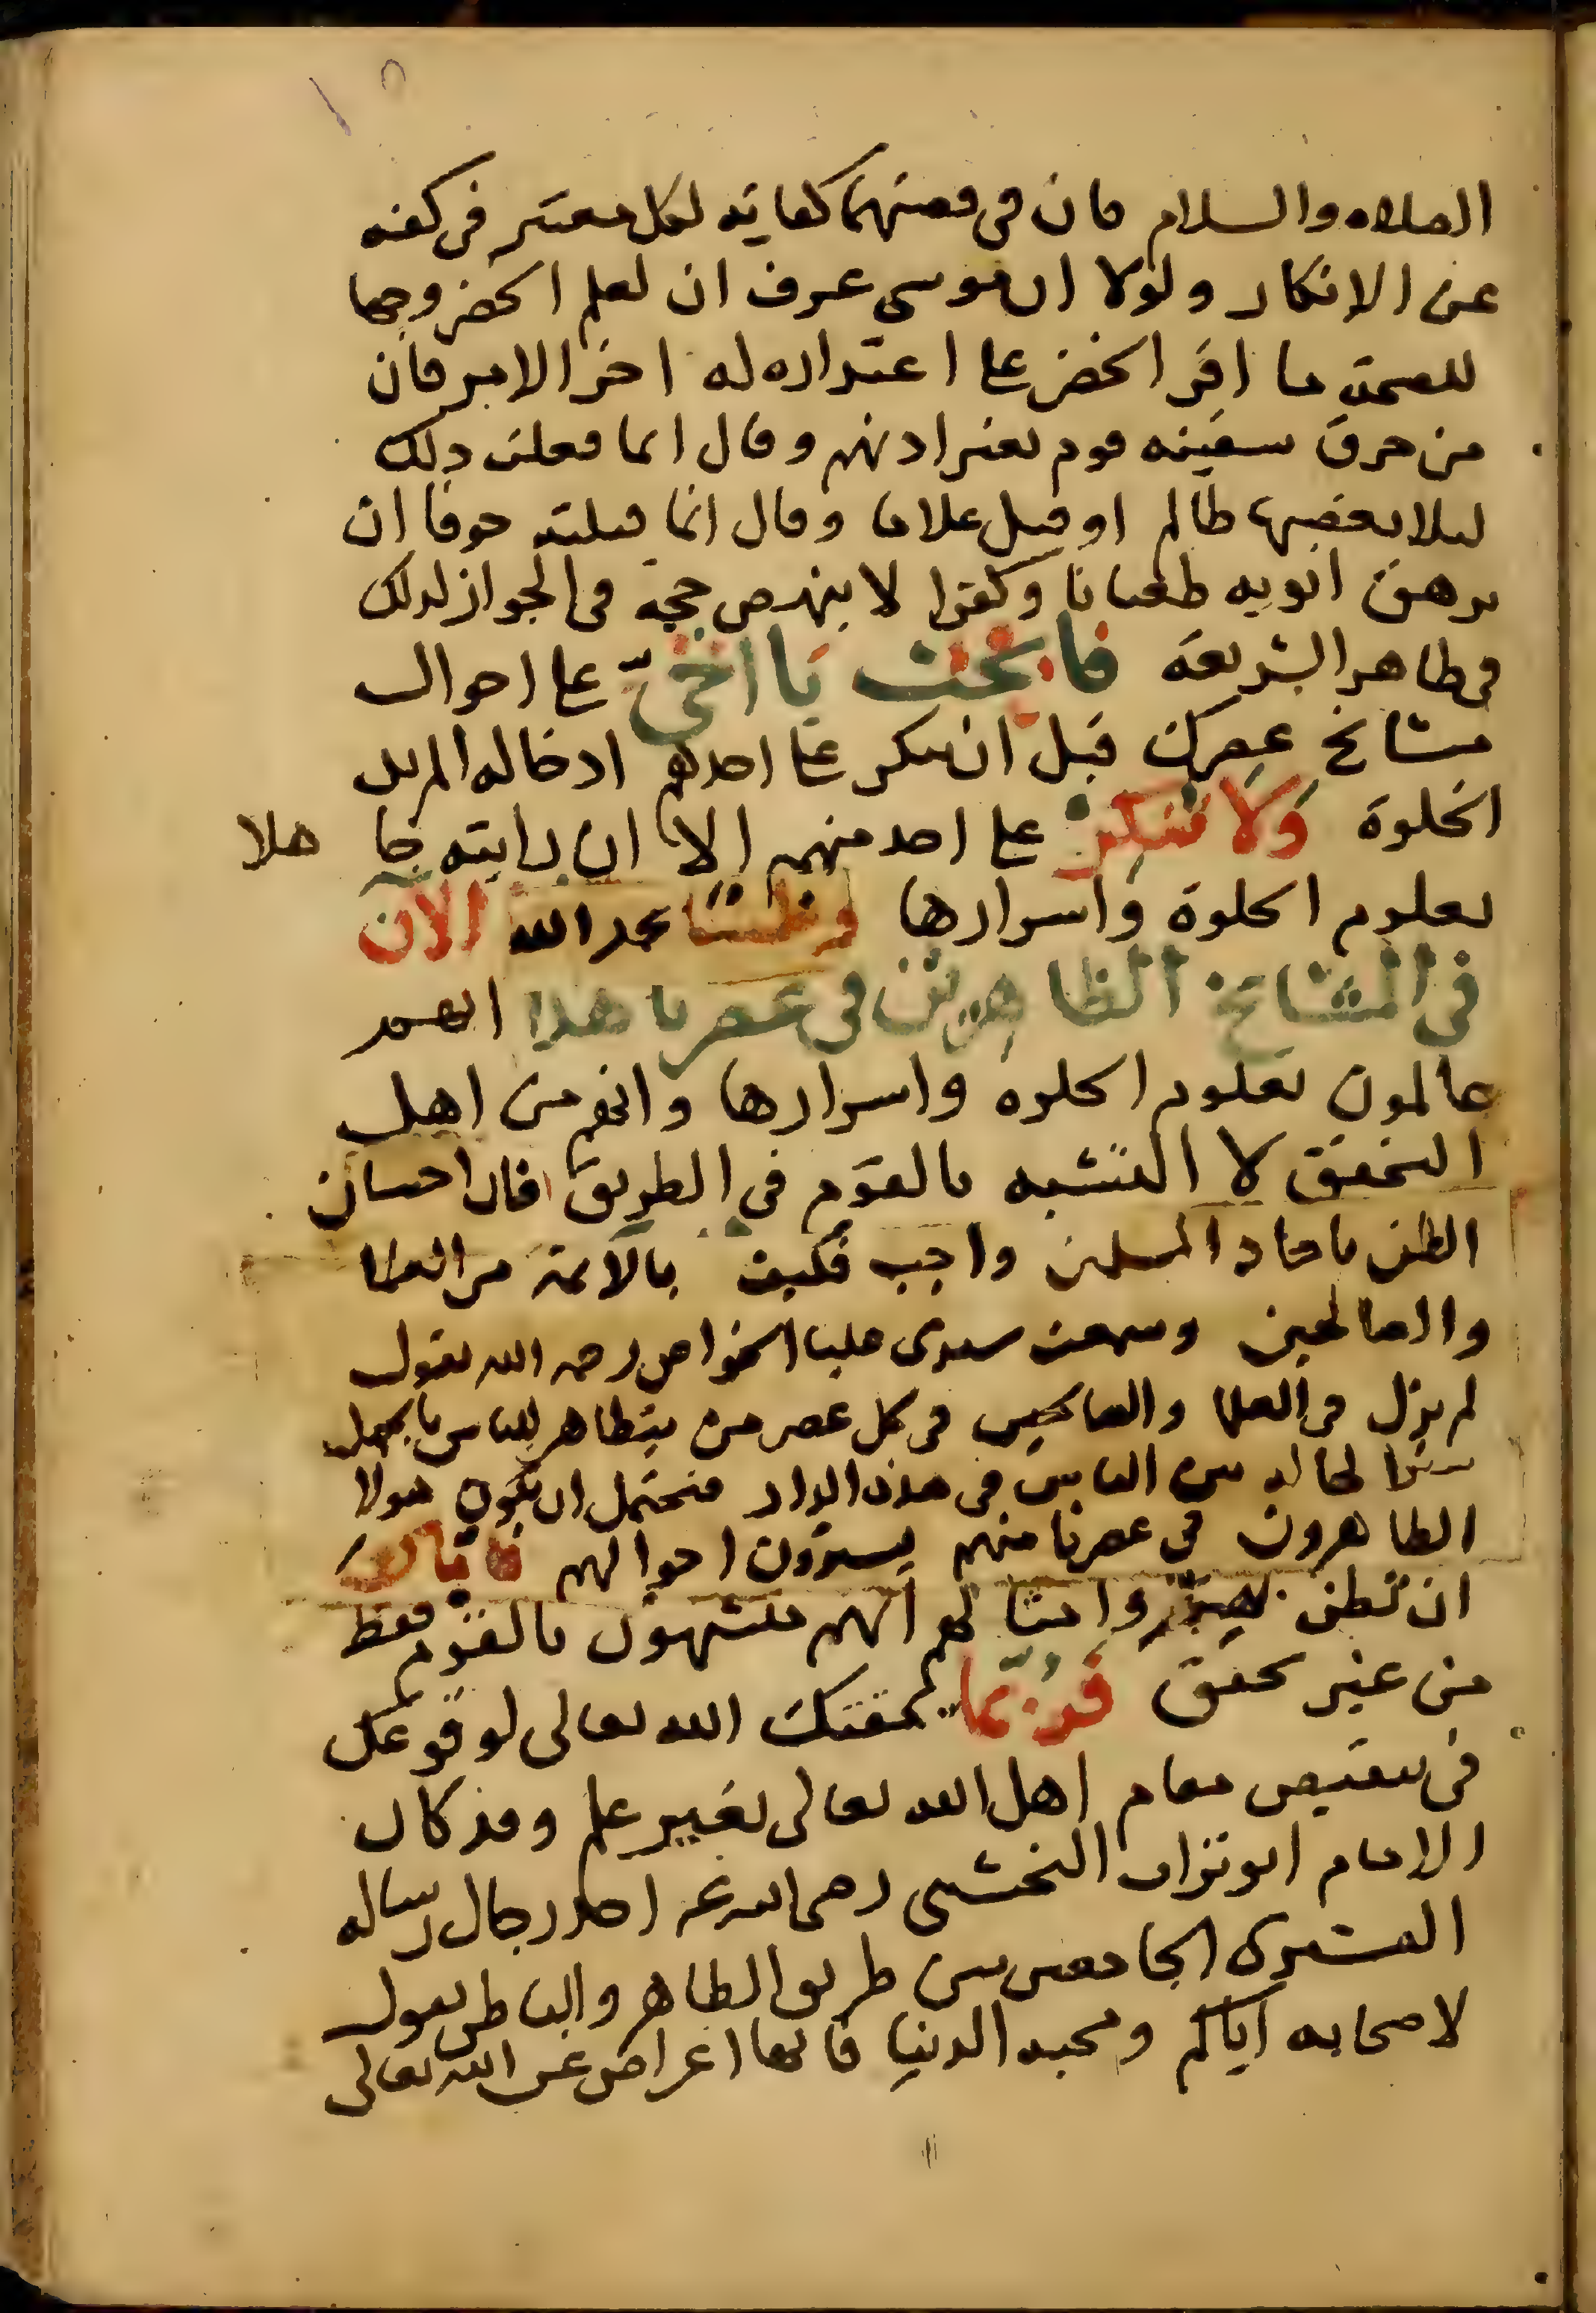 ١٥
الصلاه والسلام فان فى قصتهما كفاية لكل معتبر فى كفه
عن الانكار ولولا ان موسى عرف ان لعلم الخضر وجها
للصحة ما اقر الخضر على اعتداره له اخر الامر فان
من خرق سفينه قوم بغير ادنهم وقال انما فعلت دلك
ليلا يغصبها ظالم او قتل غلاما وقال انما قتلته خوفا ان
يرهق ابويه طغيانا وكفرا لا ينهض حجة فى الجواز لدلك
فى ظاهر الشريعة فابحث يا اخىّ على احوال
مشائخ عصرك قبل ان تنكر على احدهم ادخاله المريد
الخلوة وَلا تنكِرْ على احد منهم الا ان رايته جا هلا
بعلوم الخلوة واسرارها وظننا بحمد الله الآن
فى المشائخ الظاهرين فى عصرنا هذا انهم
عالمون بعلوم الخلوه واسرارها وانهم من اهل
التحقق لا التشبه بالقوم فى الطريق فان احسان
الظن باحاد المسلمين واجب فكيف بالآئمة من العلما
والصالحين وسمعت سيدى عليا الخواص رحمه الله يقول
لم يزل فى العلما والصالحين فى كل عصر من يتظاهر للناس بالجهل
سترا لحاله بين الناس فى هذه الدار فيحتمل ان يكون هولا
الظاهرون فى عصرنا منهم يسترون احوالهم فاياكَ
ان تظن بهم وامثالهم انهم متشبهون بالقوم فقط
من غير تحقق فربّما يمقتك الله تعالى لوقوعك
فى تنقيص مقام اهل الله تعالى بغير علم وقد كان
الامام ابو تراب النخشبى رضى الله عنه احد رجال رساله
القشيرى الجامعين بين طريق الظاهر والباطن يقول
لاصحابه اياكم ومحبه الدنيا فانها اعراض عن الله تعالى